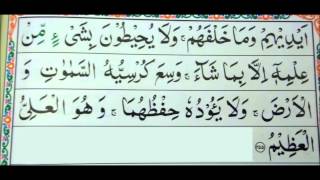 اَيْدِيْهِمْ وَمَا خَلْفَهُمْ ۚ وَلَا يُحِيْطُوْنَ بِشَیْءٍ مِّنْ
عِلْمِهٖۤ اِلَّا بِمَا شَآءَ ۚ وَسِعَ كُرْسِيُّهُ السَّمٰوٰتِ وَ
الْاَرْضَ ۚ وَلَا يَـُٔوْدُهٗ حِفْظُهُمَا ۚ وَ هُوَ الْعَلِیُّ
الْعَظِيْمُ ۝۲۵۵